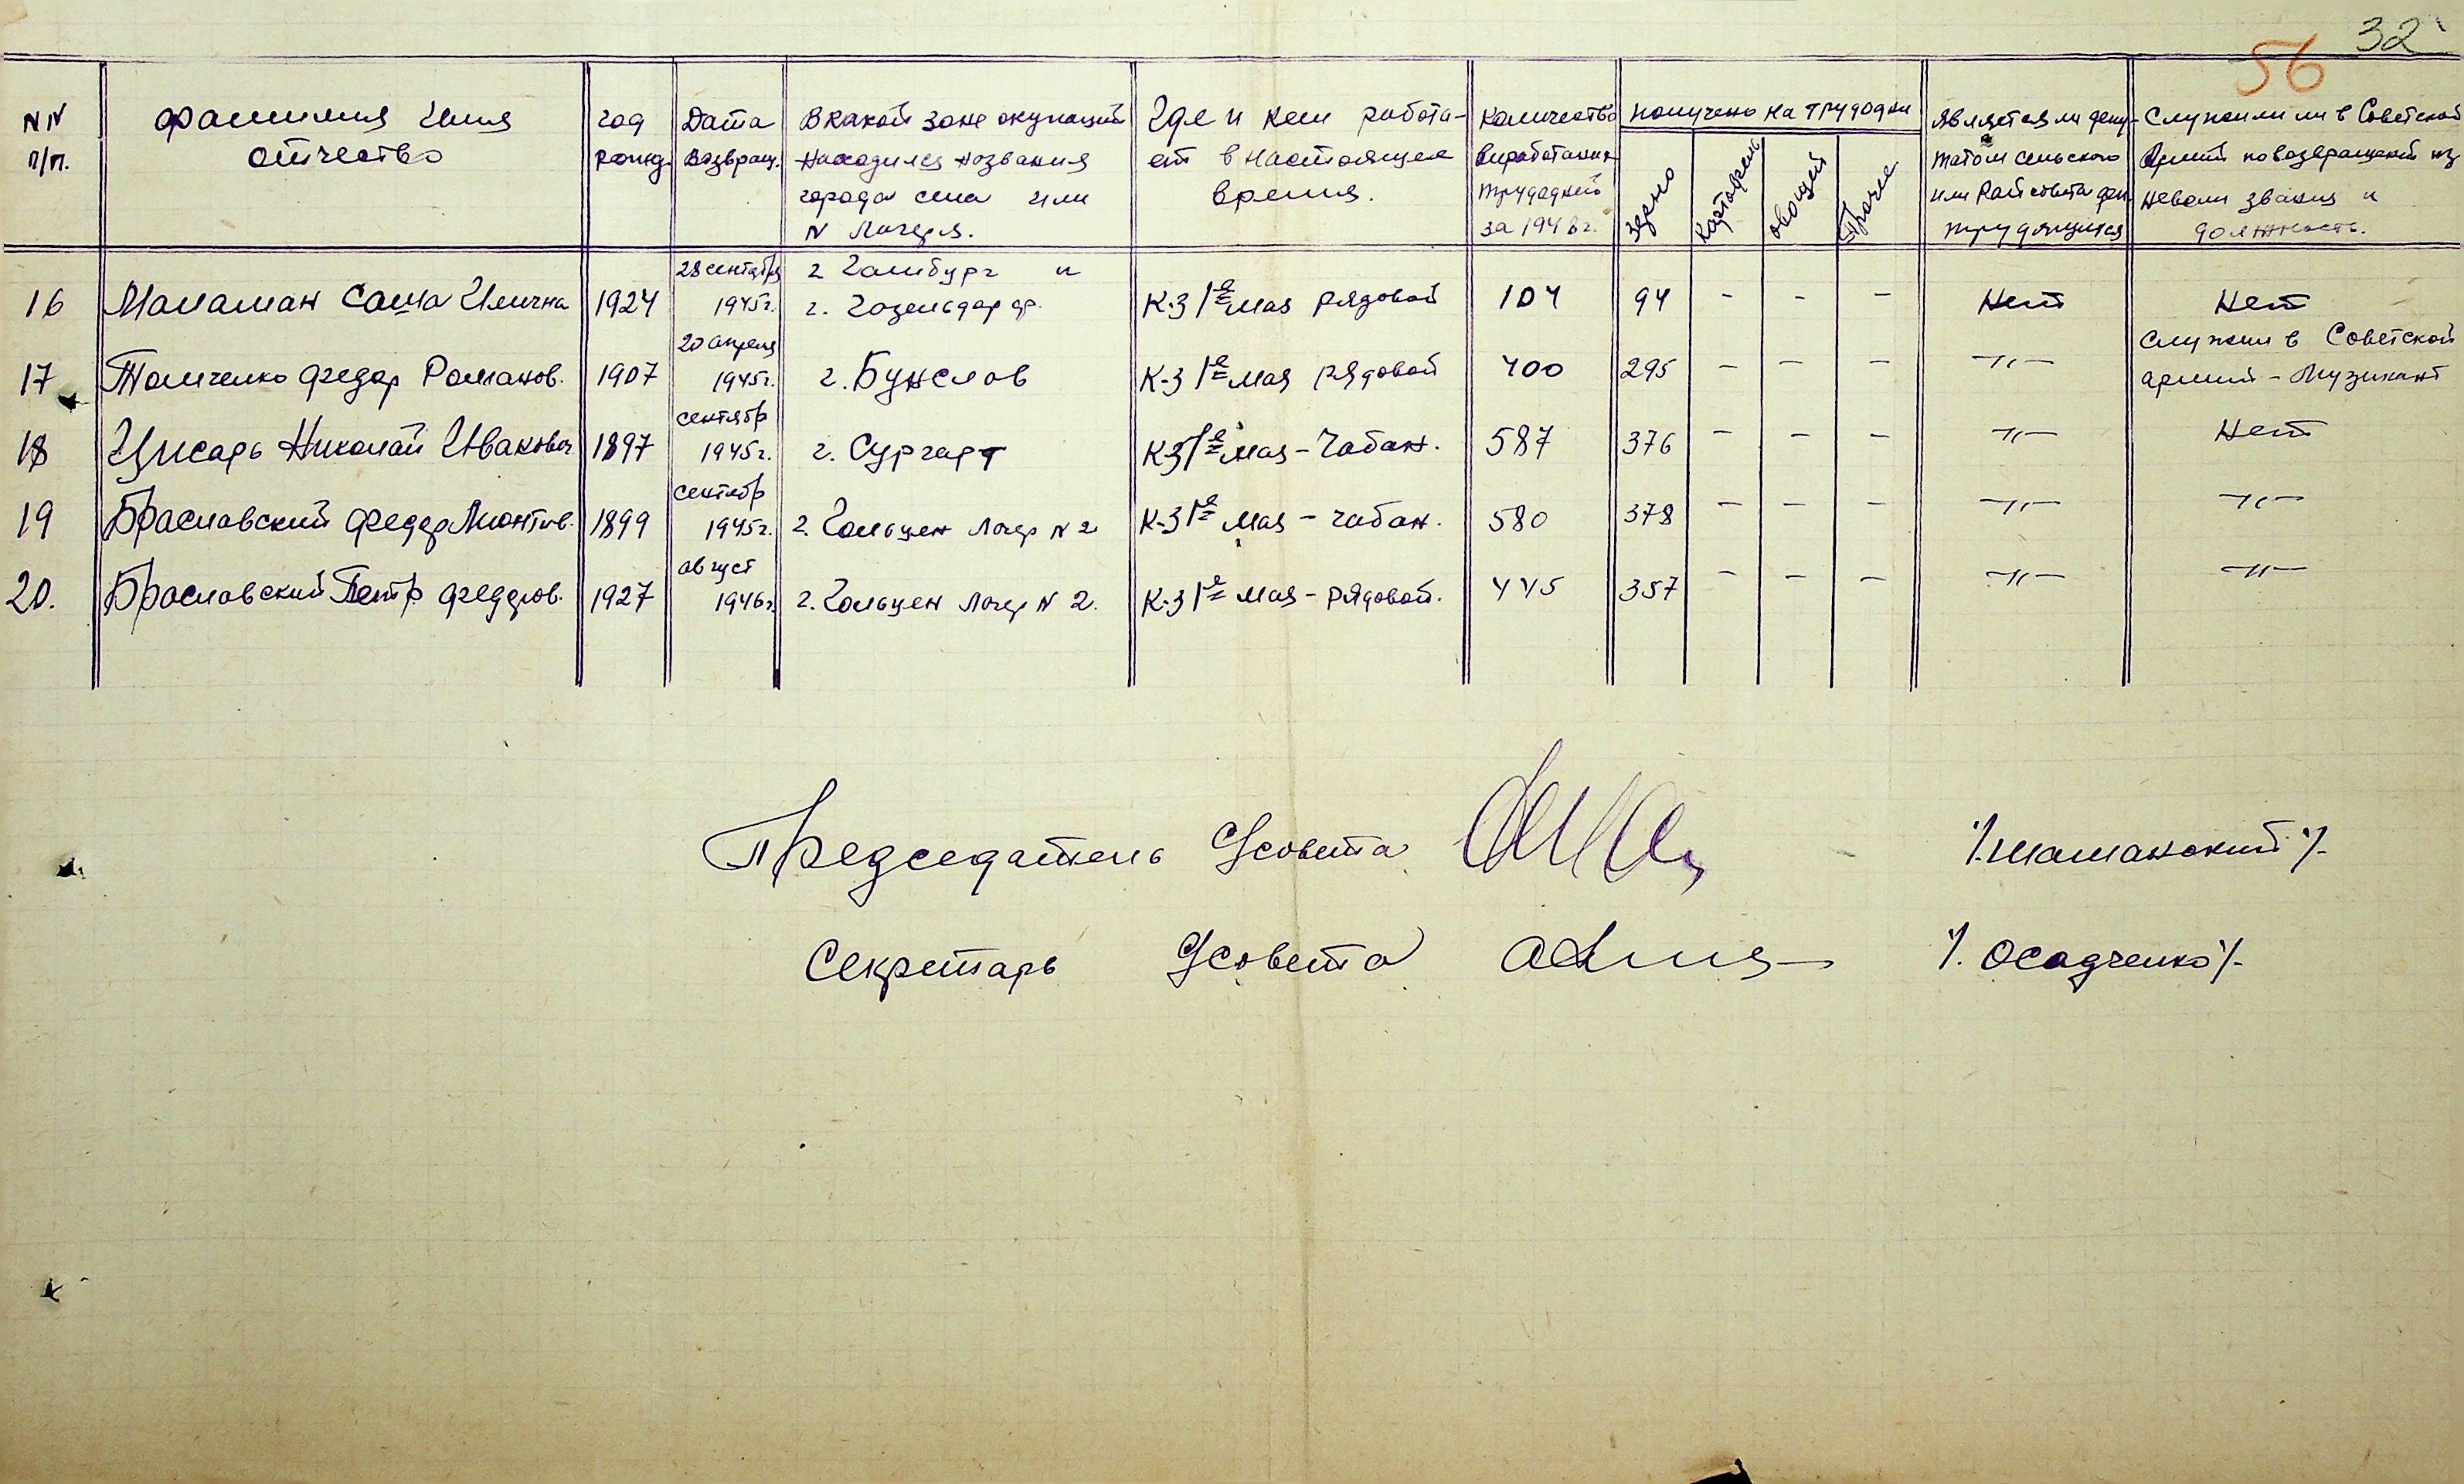 32
56
NN п/п.
фамилия имя отчество
год рожд.
Дата возвращ.
В какой зоне окупаций находился названия города села или N лагеря.
Где и кем работает в настоящее время.
Количество выработаных трудодней за 1948 г.
получено на трудодни
зерно
картофель
овощей
Прочие
является ли депутатом сельского или Райсовета деп. трудящихся
Служили ли в Советской Армий по возвращений из неволи звания и должность.
16 Маламан Саша Илична 1924 28 сентября 1945г. г Гамбург и г. Гозельдорф. К-з 1е мая рядовой 104 94 - - - Нет Нет
17 Томченко Федор Романов. 1907 20 апреля 1945г. г. Бунслов К-з 1е мая рядовой 400 295 - - - -"- Служил в Советской армий - Музикант
18 Цисарь Николай Иванович 1897 сентябр 1945г. г. Сургарт К-з 1е мая - Чабан. 587 376 - - - -"- Нет
19 Браславский Федор Лионтив. 1899 сентябр 1945г. г. Гольцен лагер N 2 К-з 1е мая - чабан. 580 378 - - - -"- -"-
20. Браславский Петр Федоров. 1927 август 1946г. г. Гольцен лагер N 2. К-з 1е мая - рядовой. 445 357 - - - -"- -"-
Председатель С/совета /.Шаманский/.
Секретарь С/совета /. Осадченко/.